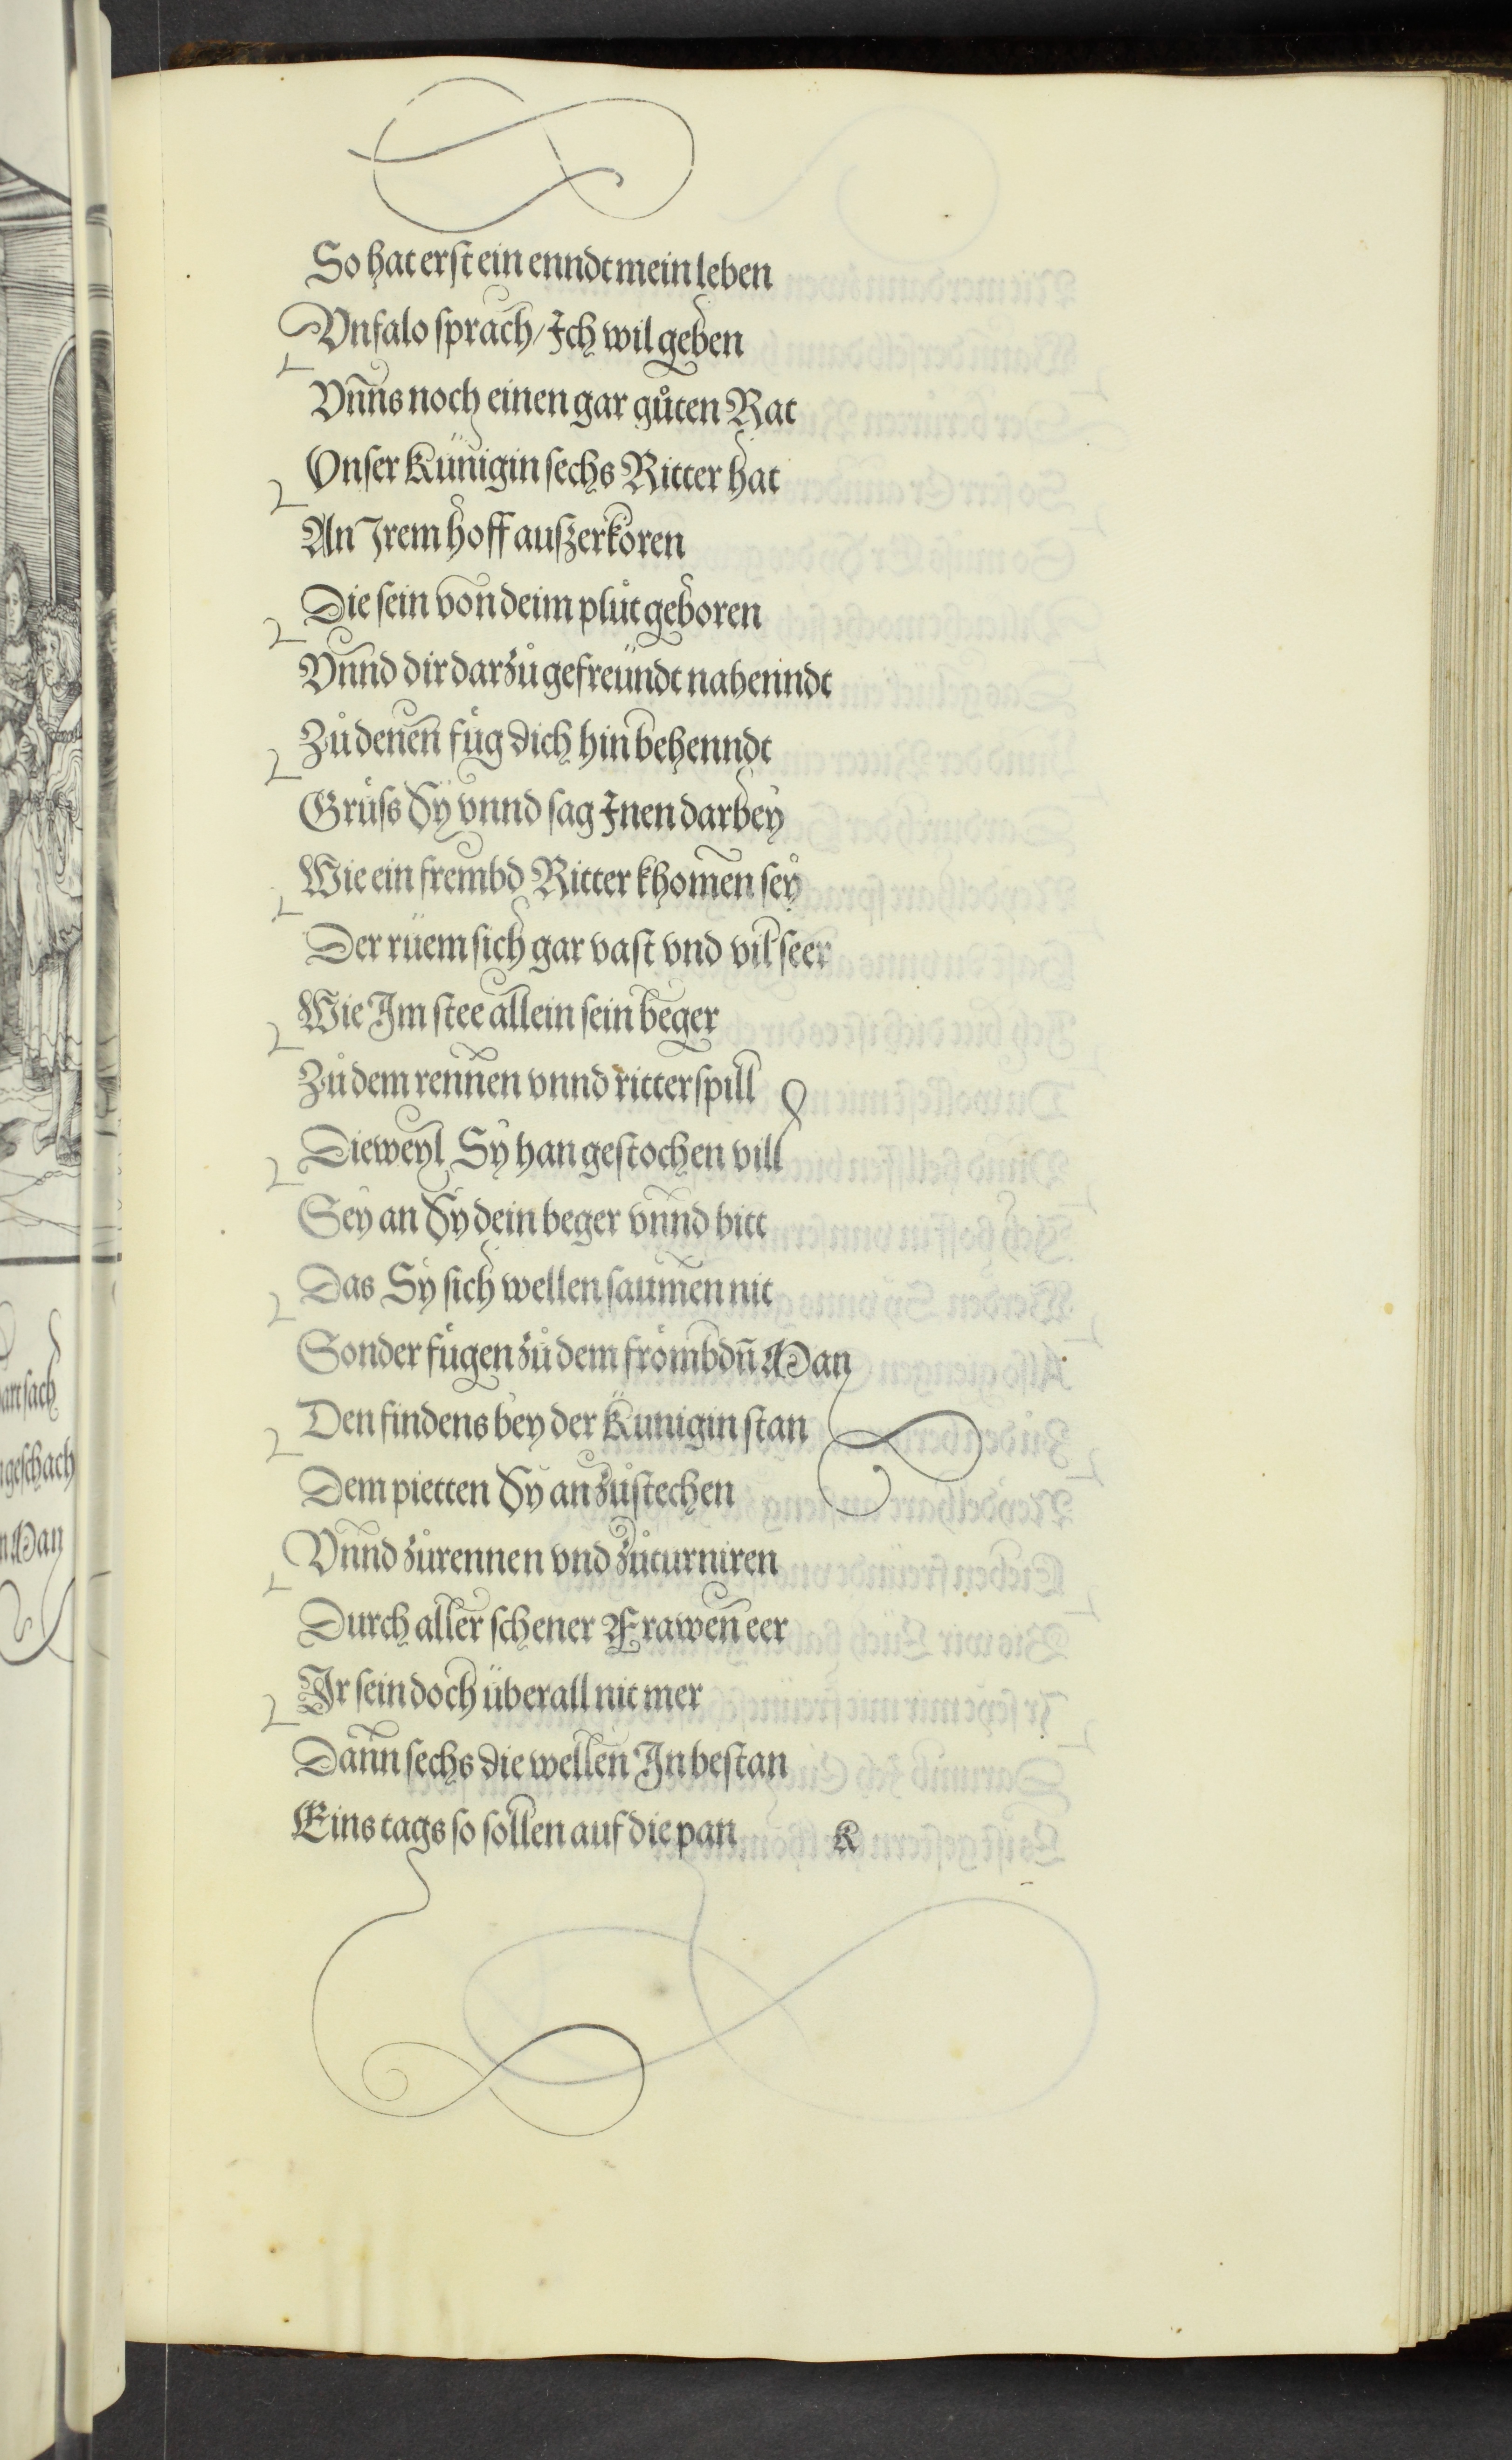 So hat erst ein enndt mein leben
Vnfalo sprach / Ich wil geben
Vnns noch einen gar gůten Rat
Vnser Künigin sechs Ritter hat
An Irem hoff auszerkoren
Die sein von deim plůt geboren
Vnnd dir darzů gefreündt nahenndt
Zů denen füg dich hin behenndt
Grüss Sy vnnd sag Inen darbey
Wie ein frembd Ritter khomen sey
Der rüem sich gar vast vnd vil seer
Wie Im stee allein sein beger
Zů dem rennen vnnd ritterspill
Dieweyl Sy han gestochen vill
Sey an Sy dein beger vnnd bitt
Das Sy sich wellen saumen nit
Sonder fügen zů dem frömbdn̄ Man
Den findens bey der Künigin stan
Dem pietten Sy an zůstechen
Vnnd zůrennen vnd zůturniren
Durch aller schener Frawen eer
Ir sein doch überall nit mer
Dann sechs die wellen In bestan
Eins tags so sollen auf die pan K
artsach
geschach
Man